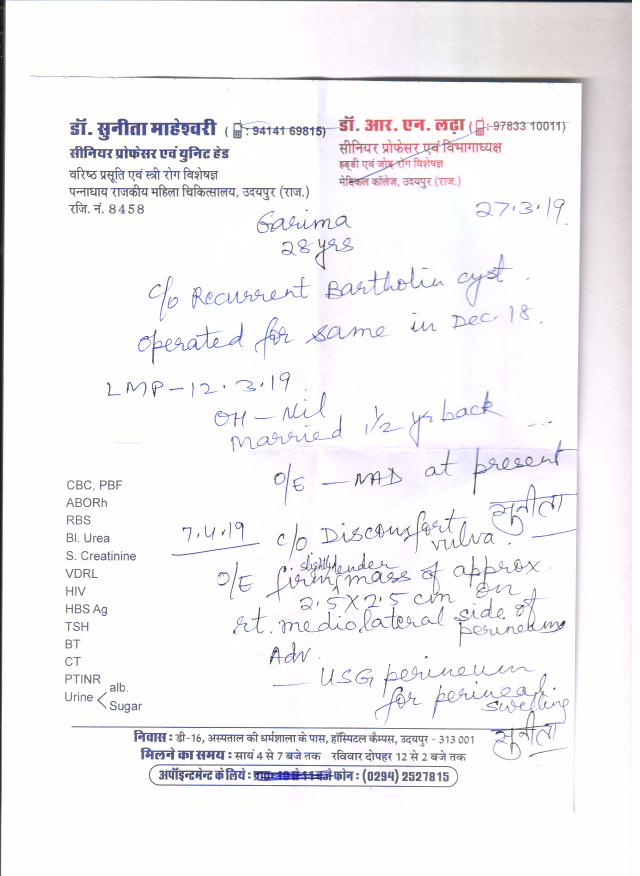 डॉ. सुनीता माहेश्वरी ( : 94141 69815)
सीनियर प्रोफेसर एवं युनिट हेड
वरिष्ठ प्रसूति एवं स्त्री रोग विशेषज्ञ
पन्नाधाय राजकीय महिला चिकित्सालय, उदयपुर (राज.)
रजि. नं. 8458
डॉ. आर. एन. लढ़ा ( : 97833 10011)
सीनियर प्रोफेसर एवं विभागाध्यक्ष
हड्डी एवं जोड़ रोग विशेषज्ञ
मेडिकल कॉलेज, उदयपुर (राज.)
27.3.19
Garima
28 yrs
c/o Recurrent Bartholin cyst.
operated for same in Dec 18.
LMP-12.3.19
OH - Nil
Married 1½ yr back
O/E - NAD at present
सुनीता
CBC, PBF
ABORh
RBS
Bl. Urea
S. Creatinine
VDRL
HIV
HBS Ag
TSH
BT
CT
PTINR
Urine < alb.
Sugar
7.4.19 c/o Discomfort
vulva.
O/E slightly tender
firm mass of approx
2.5 X 2.5 cm on
rt. mediolateral side of
perineum
Adv.
- USG perineum
for perineal
swelling
सुनीता
निवास : डी-16, अस्पताल की धर्मशाला के पास, हॉस्पिटल कैम्पस, उदयपुर - 313 001
मिलने का समय : सायं 4 से 7 बजे तक रविवार दोपहर 12 से 2 बजे तक
अपॉइन्टमेन्ट के लिये : फोन : (0294) 2527815